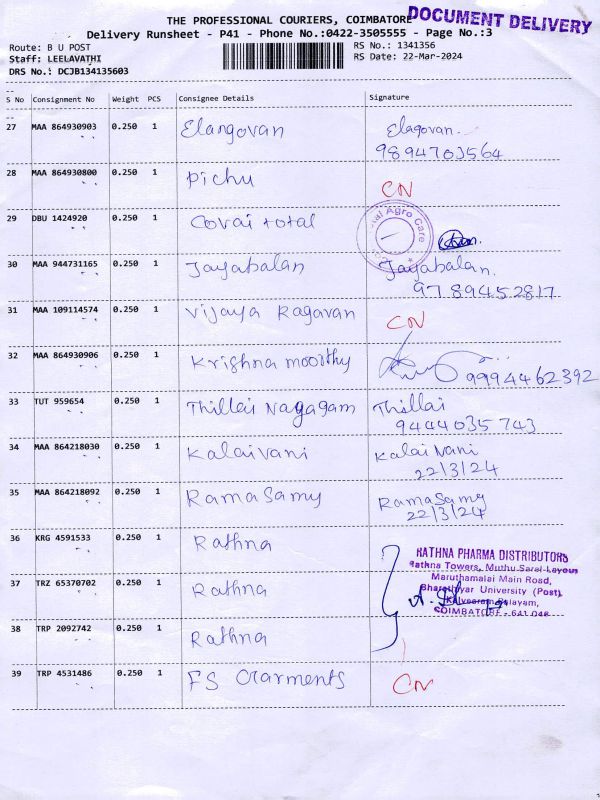 THE PROFESSIONAL COURIERS, COIMBATORE
DOCUMENT DELIVERY
Delivery Runsheet - P41 - Phone No.:0422-3505555 - Page No.:3
Route: B U POST
RS No.: 1341356
Staff: LEELAVATHI
RS Date: 22-Mar-2024
DRS No.: DCJB134135603
S No Consignment No Weight PCS Consignee Details Signature
27 MAA 864930903 0.250 1 Elangovan Elagovan.
9894703564
28 MAA 864930800 0.250 1 Pichu CN
29 DBU 1424920 0.250 1 Covai total
Agro Care
30 MAA 944731165 0.250 1 Jayabalan Jayabalan.
9789452817
31 MAA 109114574 0.250 1 Vijaya Ragavan CN
32 MAA 864930906 0.250 1 Krishna moorthy 9994462392
33 TUT 959654 0.250 1 Thillai Nagagam Thillai
9444035743
34 MAA 864218030 0.250 1 Kalaivani Kalai Nani
22/3/24
35 MAA 864218092 0.250 1 Rama Samy Rama Samy
22/3/24
36 KRG 4591533 0.250 1 Rathna
RATHNA PHARMA DISTRIBUTORS
Rathna Towers, Muthu Saral Layous
Maruthamalai Main Road,
37 TRZ 65370702 0.250 1 Rathna
Bharathiyar University (Post),
COIMBATORE - 641 046
38 TRP 2092742 0.250 1 Rathna
39 TRP 4531486 0.250 1 FS Garments CN